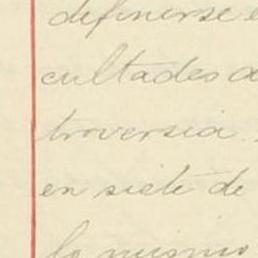 definirse e
cultades a
troversia.
en siete de
lo mismo